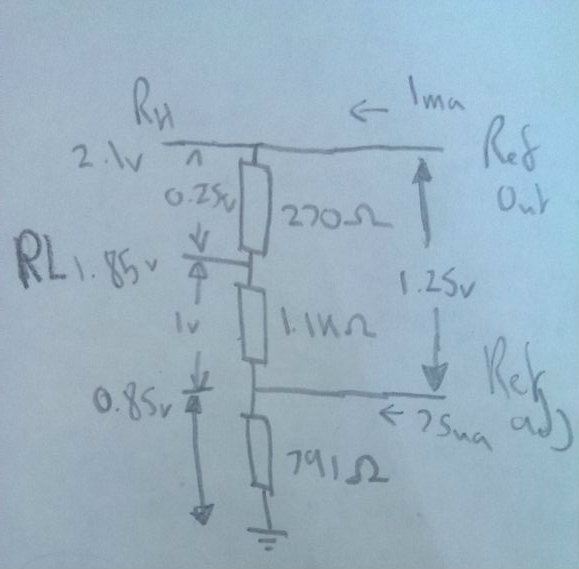 RH
1ma
2.1v
Ref
Out
0.25v
270Ω
RL 1.85v
1.25v
1v
1.1KΩ
Ref
adj
0.85v
75ua
791Ω